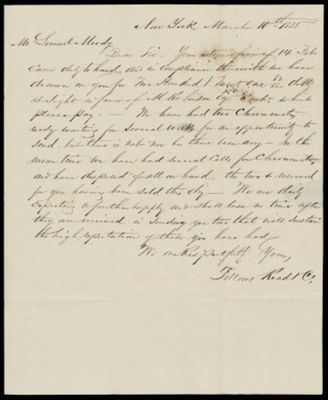 New York March 10th 1835
Mr Lemuel Moody
Dear Sir. Your esteemed favor of 14 Feb
came duly to hand and in compliance therewith we have
drawn on you for Two Hundred & Forty one dolls
at sight in favor of M Robinson Esq Cash. which
please pay. — We have had two Chronometers
ready waiting for several weeks for an opportunity to
send, but there is not nor has there been any — In the
mean time we have had several calls for Chronometers
and have disposed of all on hand, the two reserved
for you having been sold this day — We are daily
expecting a further supply and shall lose no time after
they are received in sending you two that will sustain
the high reputation of those you have had
We are Respectfully Yours,
Fellows Read & Co